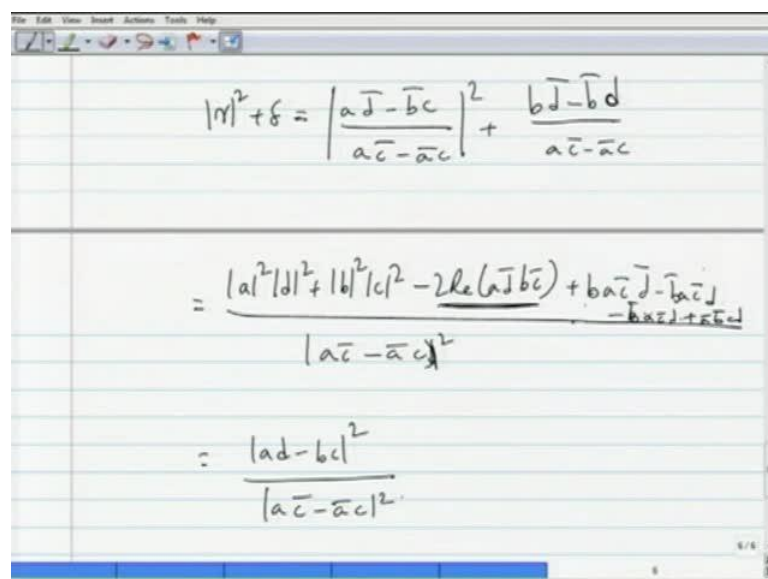 File Edit View Insert Actions Tools Help
|γ|² + δ = |(ad̄ - b̄c)/(ac̄ - āc)|² + (bd̄ - b̄d)/(ac̄ - āc)
= (|a|²|d|² + |b|²|c|² - 2Re(ad̄bc̄) + bac̄d̄ - b̄ac̄d
- b̄ac̄d + āb̄cd)/|ac̄ - āc|²
= |ad - bc|²/|ac̄ - āc|²
6/6
6